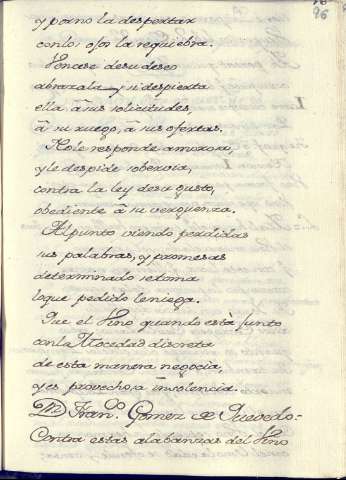 96
y por no la despertar
con los ojos la requiebra.
Vencese de su deseo
abrazala, y si despierta
ella à sus solicitudes,
à su ruego, à sus ofertas.
No le responde amorosa,
y le despide sobervia,
contra la ley de su gusto,
obediente à su verguenza.
Al punto viendo perdidas
sus palabras, y promesas
determinado se toma
lo que pedido le niega.
Que el Vino quando està junto
con la Mocedad discreta
de esta manera negocia,
y es provecho, a insolencia.
Fran.co Gomez de Quevedo=
Contra estas alabanzas del Vino